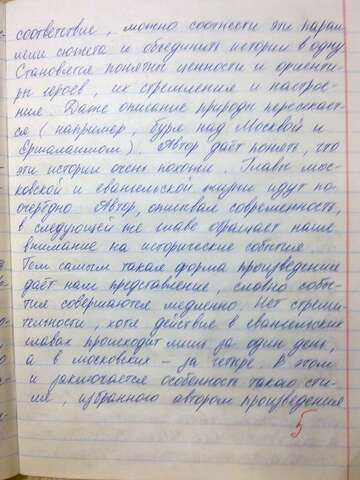 соответствие, можно соотнести эти парал-
лели сюжета и объединить истории в одну.
Становятся понятны ценности и ориенти-
ры героев, их стремления и настрое-
ние. Даже описание природы пересекает-
ся (например, буря над Москвой и
Ершалаимом). Автор даёт понять, что
эти истории очень похожи. Главы мос-
ковской и евангельской жизни идут по-
очерёдно. Автор, описывая современность,
в следующей же главе обращает наше
внимание на исторические события.
Тем самым такая форма произведения
даёт нам представление, словно собы-
тия совершаются медленно. Нет стреми-
тельности, хотя действие в евангельских
главах происходит лишь за один день,
а в московских – за четыре. В этом
и заключается особенность такого сти-
ля, избранного автором произведения
5